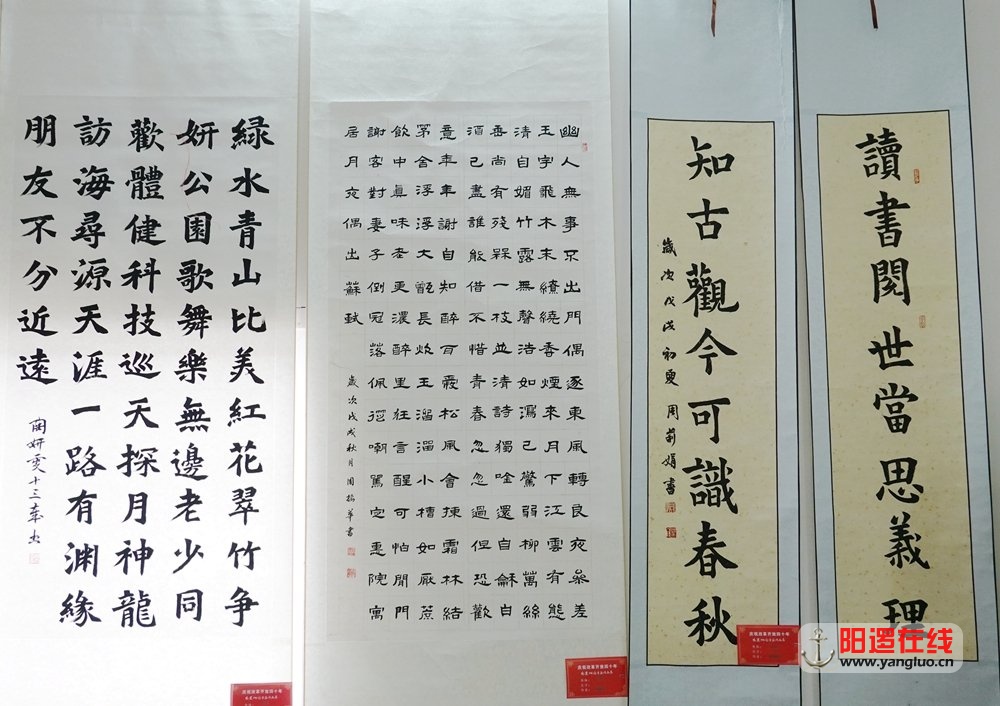 讀書閱世當思義理
知古觀今可識春秋
歲次戊戌初夏
幽人無事不出門偶逐東風轉良夜參差
玉宇飛木末繚繞香煙來月下江雲有態
清自媚竹露無聲浩如瀉已驚弱柳萬絲
垂尚有殘槑一枝並清詩獨唫還自龢白
酒已盡誰能借不惜青春忽忽過但恐歡
意年年謝自知醉耳愛松風會揀霜林結
茅舍浮浮大甑長炊玉溜溜小槽如壓蔗
飲中眞味老更濃醉里狂言醒可怕閉門
謝客對妻子倒冠落佩從嘲罵定惠院寓
居月夜偶出蘇軾
歲次戊戌秋月周梅華書
綠水青山比美紅花翠竹争
妍公園歌舞樂無邊老少同
歡體健科技巡天探月神龍
訪海尋源天涯一路有渊緣
朋友不分近遠
庆祝改革开放四十年
庆祝改革开放四十年
庆祝改革开放四十年
阳逻在线
www.yangluo.cn